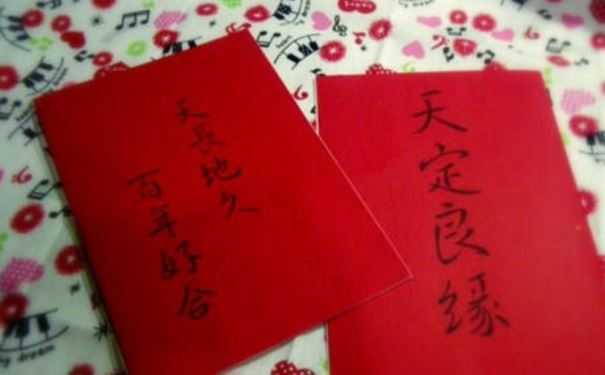 天長地久
百年好合
天定良缘
dream